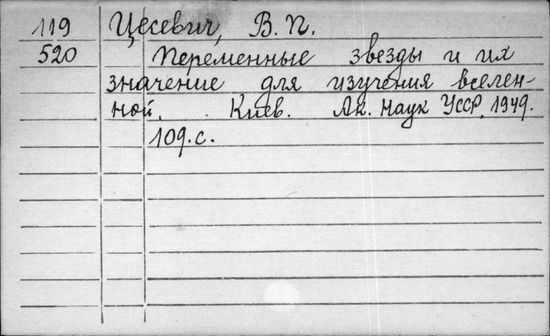 119 Цесевич, В. П.
520 Переменные звезды и их
значение для изучения вселен-
ной. Киев. Ак. Наук УССР, 1949.
109.с.